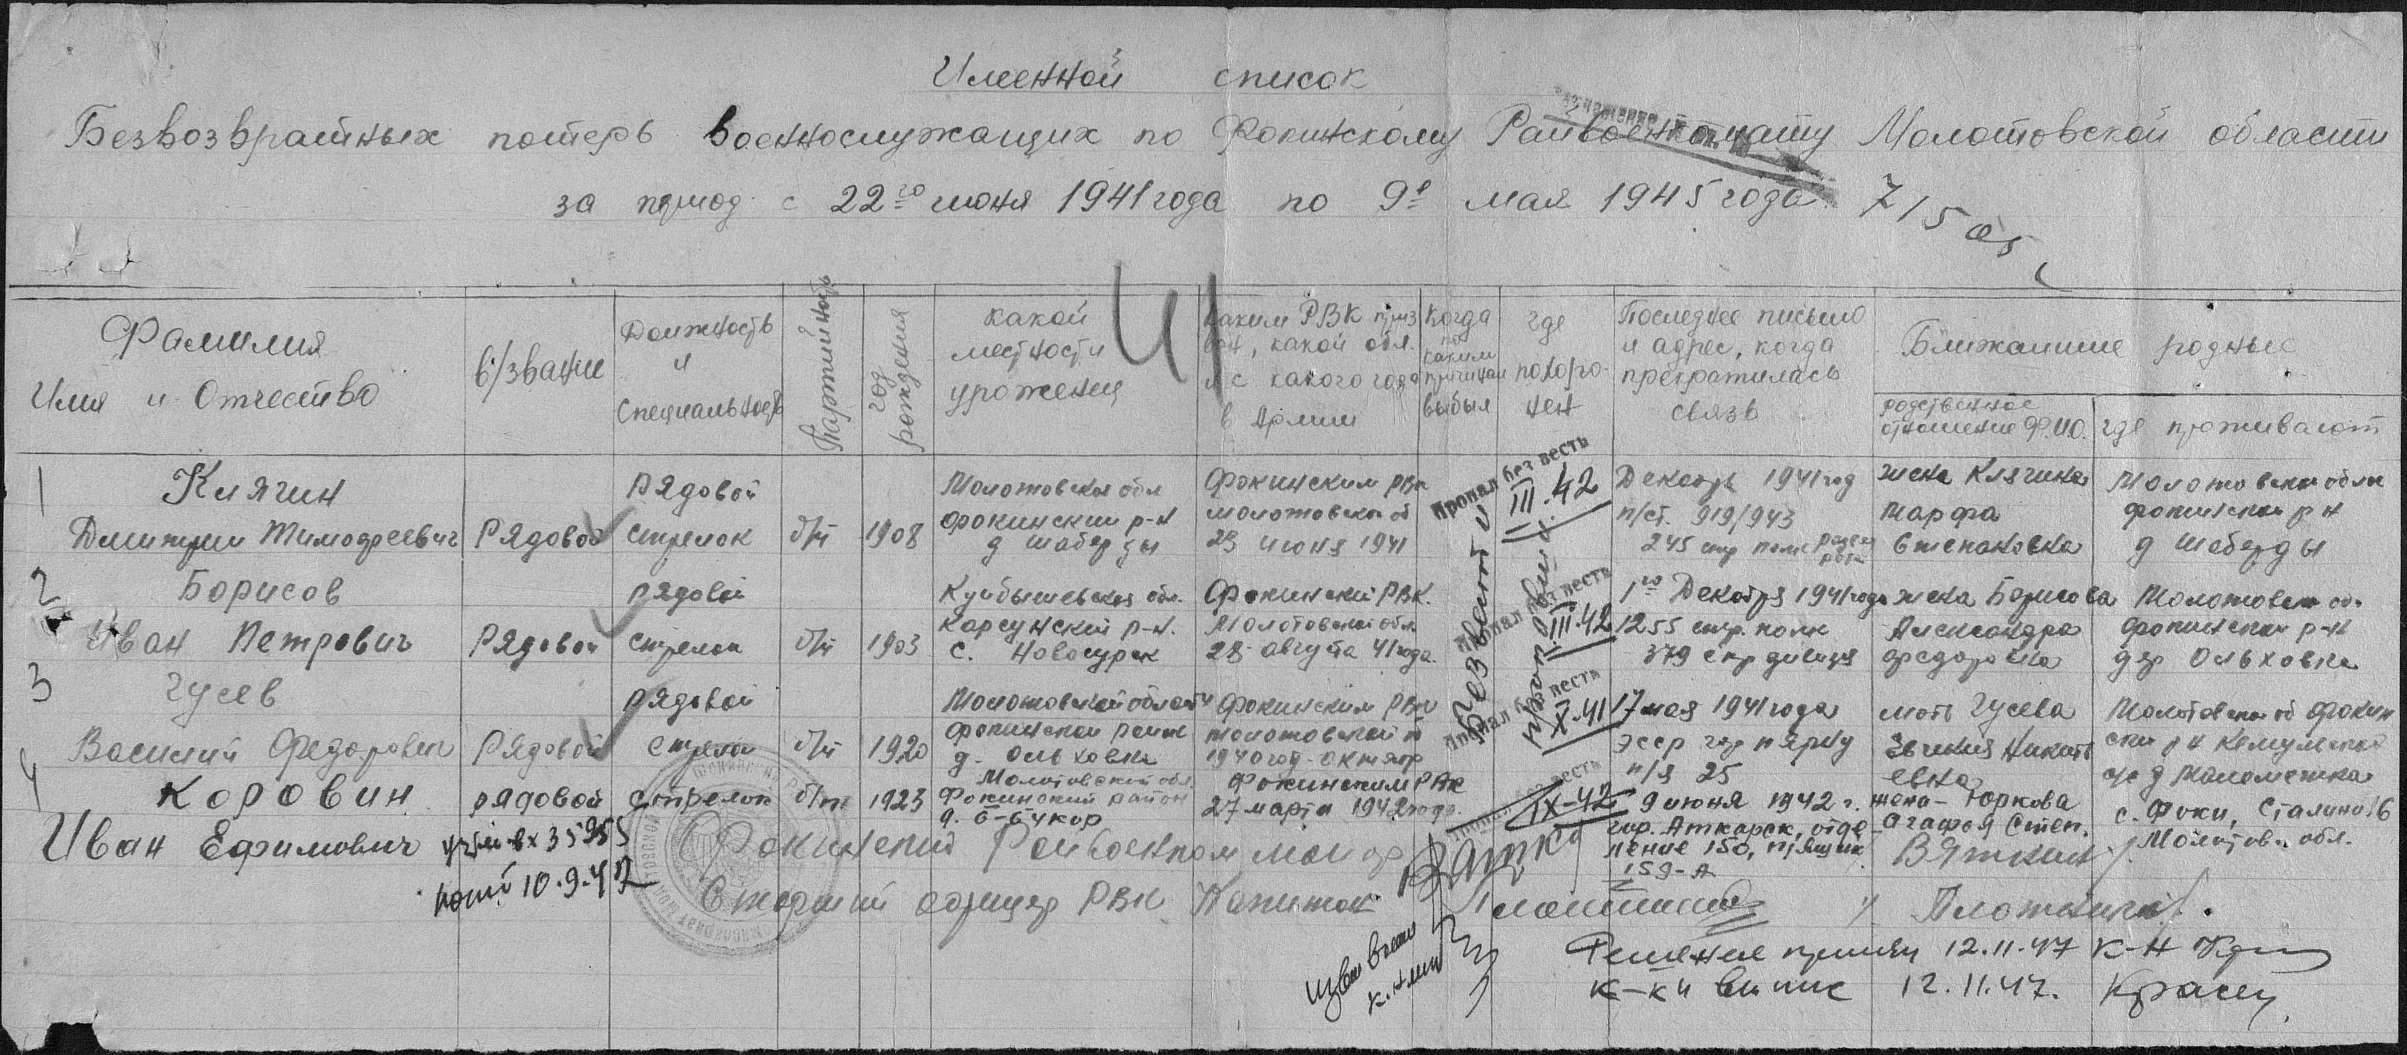 Именной список
Безвозвратных потерь военнослужащих по Фокинскому Райвоенкомату Молотовской области
за период с 22го июня 1941 года по 9е мая 1945 года
Фамилия
Имя и Отчество
в/звание
Должность
и
специальность
Партийность
год
рождения
какой
местности
уроженец
каким РВК призван, какой обл.
и с какого года
в Армии
Когда
по
каким
причинам
выбыл
где
похоро-
нен
Последнее письмо
и адрес, когда
прекратилась
связь
Ближайшие родные
родственное
отношение Ф.И.О.
где проживают
1
Клячин
Дмитрий Тимофеевич
Рядовой
рядовой
стрелок
б/п
1908
Молотовская обл
Фокинский р-н
д Шаберды
Фокинским РВК
Молотовской об
23 июня 1941
Пропал без вести
III.42
Декабрь 1941 год
п/ст. 919/943
245 стр полк
жена Клячина
Марфа
Степановна
Молотовская обл
Фокинский р н
д Шаберды
2
Борисов
Иван Петрович
Рядовой
рядовой
стрелок
б/п
1903
Куйбышевская обл.
Карсунский р-н.
с. Новосурск
Фокинский РВК.
Молотовской обл
28 августа 41 года.
Пропал без вести
III.42
1го Декабря 1941 года
1255 стр. полк
379 стр дивизия
жена Борисова
Александра
Федоровна
Молотовская об.
Фокинский р-н
дер Ольховка
3
Гусев
Василий Федорович
Рядовой
рядовой
стрелок
б/п
1920
Молотовской области
Фокинский район
д. Ольховка
Фокинским РВК
Молотовской
1940 год-октябр
Пропал без вести
X.41
17 мая 1941 года
ЭССР гор Пярну
п/я 25
мать Гусева
Евгения
Молотовская об Фокин
ский р н
4
Коровин
Иван Ефимович
рядовой
стрелок
б/п
1923
Молотовской обл.
Фокинский район
Фокинским РВК
27 марта 1942 года.
IX-42
9 июня 1942 г.
гор. Аткарск, отде-
ление 150, п/ящик
159-А
жена - Юркова
Агафья Степ.
с. Фоки, Сталина 16
Молотов. обл.
Фокинский Райвоенком майор
Вяткин
Старший офицер РВК Капитан
Плотников
10.9.42
Решение принял 12.11.47 к-н
12.11.47.